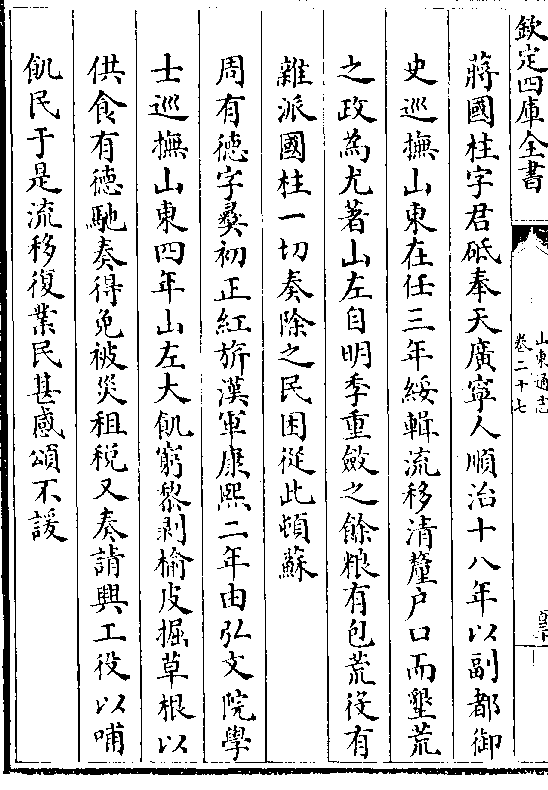 欽定四庫全書
山東通志
卷二十七
蔣國柱字君砥奉天廣寧人順治十八年以副都御
史巡撫山東在任三年綏輯流移清釐户口而墾荒
之政為尤著山左自明季重斂之餘粮有包荒役有
雜派國柱一切奏除之民困從此頓蘇
周有德字彝初正紅旂漢軍康熙二年由弘文院學
士巡撫山東四年山左大飢窮黎剥榆皮掘草根以
供食有德馳奏得免被災租税又奏請興工役以哺
飢民于是流移復業民甚感頌不諼